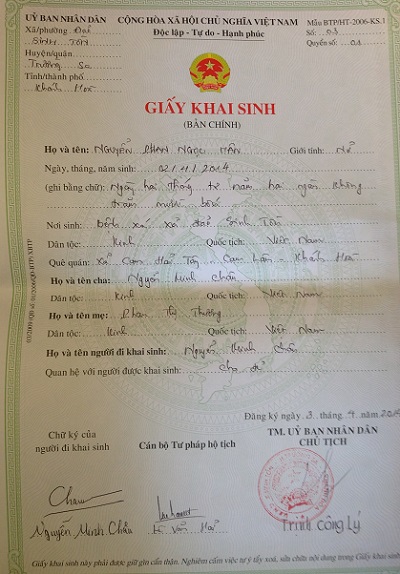 ỦY BAN NHÂN DÂN CỘNG HÒA XÃ HỘI CHỦ NGHĨA VIỆT NAM Mẫu BTP/HT-2006-KS.1
Xã/phường: Đảo Độc lập - Tự do - Hạnh phúc Số: 03
Sinh Tồn Quyển số: 01
Huyện/quận:
Trường Sa
Tỉnh/thành phố
Khánh Hoà
GIẤY KHAI SINH
(BẢN CHÍNH)
Họ và tên: NGUYỄN PHAN NGỌC HÂN Giới tính: Nữ
Ngày, tháng, năm sinh: 02/4/2014
(ghi bằng chữ): Ngày hai tháng tư năm hai ngàn không
trăm mười bốn
Nơi sinh: Bệnh xá xã đảo Sinh Tồn
Dân tộc: Kinh Quốc tịch: Việt Nam
Quê quán: Xã Cam Hải Tây, Cam Lâm - Khánh Hoà
Họ và tên cha: Nguyễn Minh Chấn
Dân tộc: Kinh Quốc tịch: Việt Nam
Họ và tên mẹ: Phan Thị Thường
Dân tộc: Kinh Quốc tịch: Việt Nam
Họ và tên người đi khai sinh: Nguyễn Minh Chấn
Quan hệ với người được khai sinh: Cha đẻ
Đăng ký ngày 3 tháng 4 năm 2014
Chữ ký của Cán bộ Tư pháp hộ tịch TM. UỶ BAN NHÂN DÂN
người đi khai sinh CHỦ TỊCH
Nguyễn Minh Chấn Văn Trịnh Công Lý
Giấy khai sinh này phải được giữ gìn cẩn thận. Nghiêm cấm việc tự ý tẩy xoá, sửa chữa nội dung trong Giấy khai sinh.